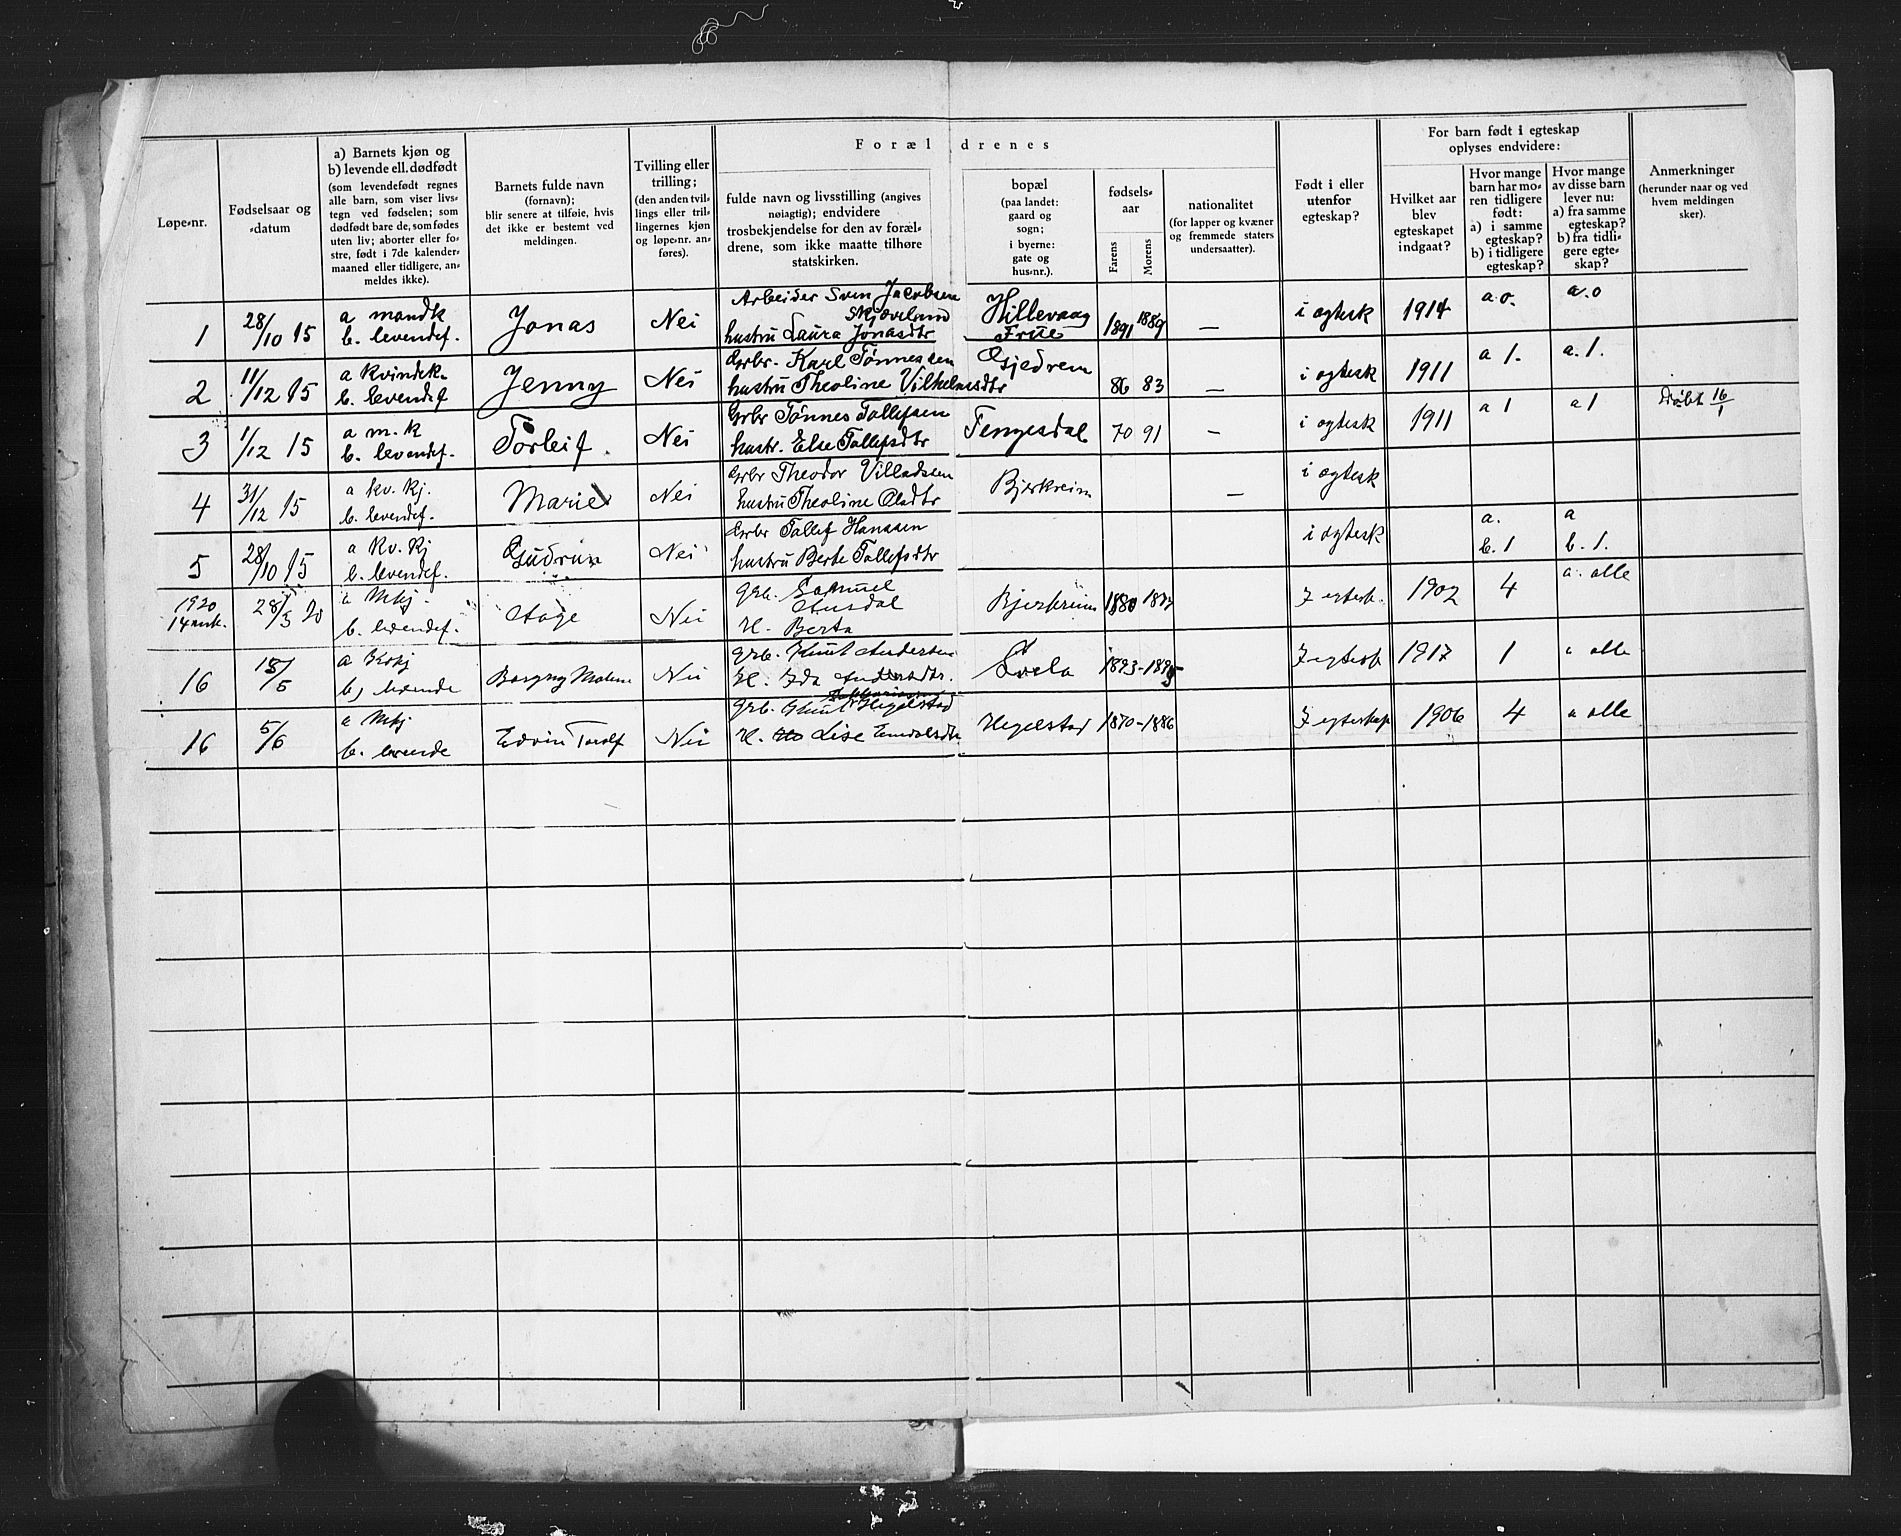 Foræl drenes
For barn født i egteskap
oplyses endvidere:
Løpe=nr.
Fødselsaar og
=datum
a) Barnets kjøn og
b) levende ell. dødfødt
(som levendefødt regnes
alle barn, som viser livs=
tegn ved fødselen; som
dødfødt bare de, som fødes
uten liv; aborter eller fo=
stre, født i 7de kalender=
maaned eller tidligere, an=
meldes ikke).
Barnets fulde navn
(fornavn);
blir senere at tilføie, hvis
det ikke er bestemt ved
meldingen.
Tvilling eller
trilling;
(den anden tvil=
lings eller tril=
lingernes kjøn
og løpe=nr. an=
føres).
fulde navn og livsstilling (angives
nøiagtig); endvidere
trosbekjendelse for den av foræl=
drene, som ikke maatte tilhøre
statskirken.
bopæl
(paa landet:
gaard og
sogn;
i byerne:
gate og
hus=nr.).
fødsels=
aar
Farens
Morens
nationalitet
(for lapper og kvæner
og fremmede staters
undersaatter).
Født i eller
utenfor
egteskap?
Hvilket aar
blev
egteskapet
indgaat?
Hvor mange
barn har mo=
ren tidligere
født:
a) i samme
egteskap?
b) i tidligere
egteskap?
Hvor mange
av disse barn
lever nu:
a) fra samme
egteskap?
b) fra tidli=
gere egte=
skap?
Anmerkninger
(herunder naar og ved
hvem meldingen
sker).
1 28/10 15 a mandk b. levendef. Jonas Nei Arbeider Sven Jacobsen Skjæveland hustru Laura Jonasdtr Hillevaag Frue 1891 1889 — i egtesk 1914 a.o. a.o
2 11/12 15 a kvindek. b. levendef Jenny Nei Grbr. Karl Tønnessen hustru Theoline Vilhelmsdtr Gjedrem 86 83 — i egtesk 1911 a 1. a. 1.
3 1/12 15 a m.k b. levendef. Torleif. Nei Grbr Tønnes Tollefsen hustr. Else Tollefsdtr Tengesdal 70 91 — i egtesk 1911 a 1 a 1 Døbt 16/1
4 31/12 15 a kv. kj. b. levendef. Marie Nei Grbr Theodor Villadsen hustru Theoline Olsdtr Bjerkreim — i egtesk
5 28/10 15 a kv. kj b. levendef. Gudrun Nei Grbr Tollef Hanssen hustru Berte Tollefsdtr i egtesk a. b. 1 a b. 1.
1920 14 28/3 20 a Mkj. b. levendef. Aage Nei grb. Samuel Ausdal H. Berta Bjerkreim 1880 I egtesk. 1902 4 a. alle
16 /5 a Kvkj b) levende Borgny Malene Nei grb. Knut Andersen H. Ida Andersdtr. Svela 1893-1895 I egtesk 1917 1 a alle
16 5/6 a Mkj b. levende Edvin Torolf Nei grb. Hegelstad H. Lise Hegelstad 1870-1886 I egteskap 1906 4 a alle